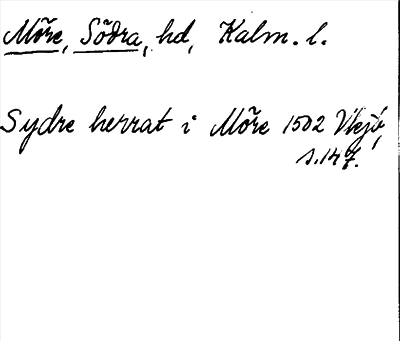 Möre, Södra, hd, Kalm. l.
Sydre herrat i Möre 1502 Vejb,
s. 147.